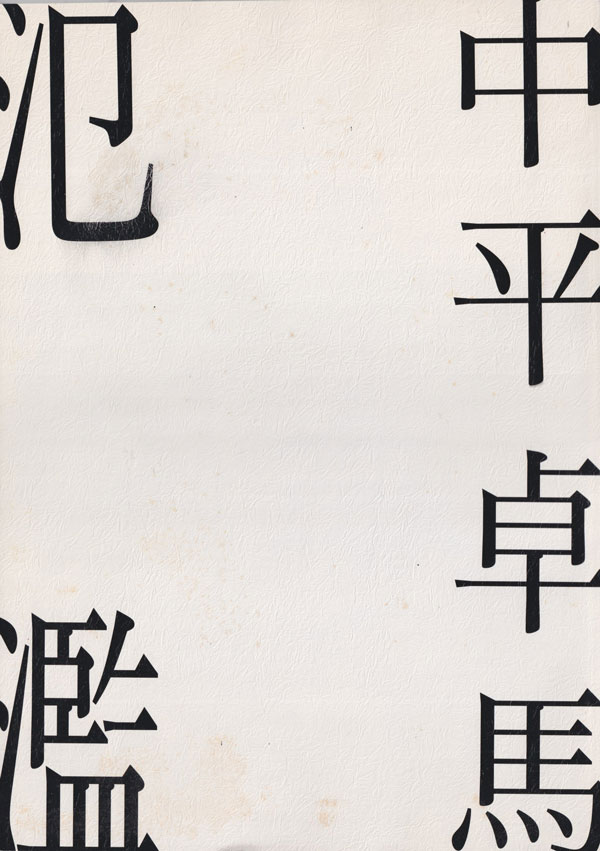 中平卓馬
氾濫